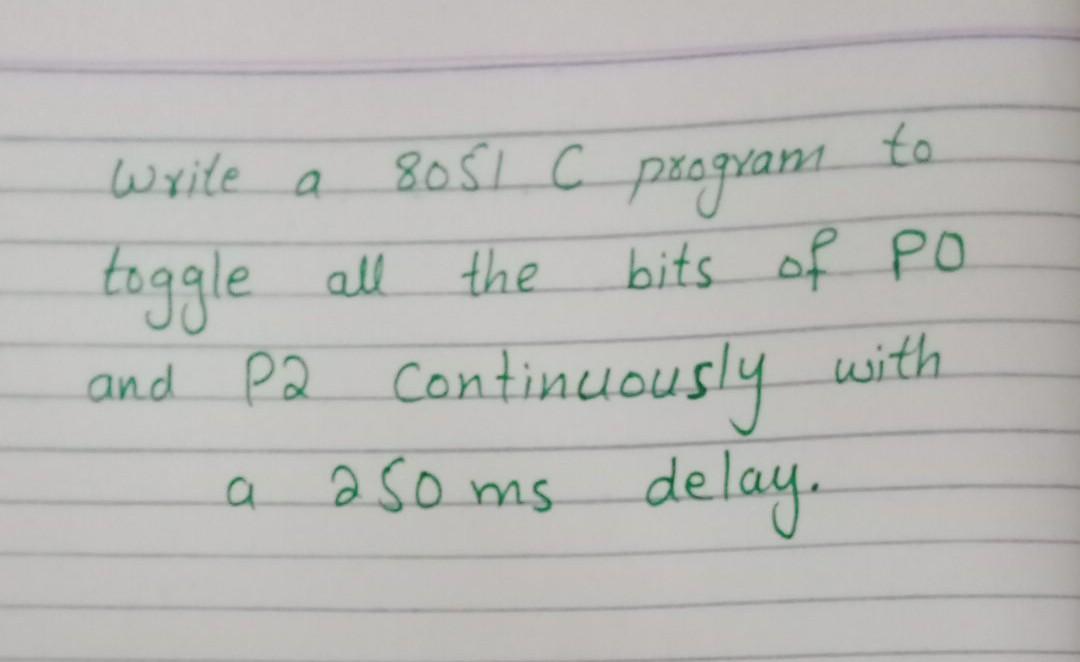 Write a 8051 C program to
toggle all the bits of P0
and P2 Continuously with
a 250 ms delay.